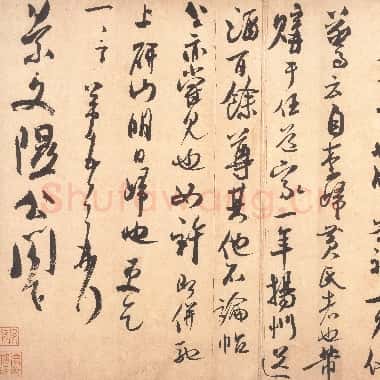 驚云自李歸黃氏者也芾
購于任道家一年揚州送
酒百餘尊其他不論帖
公亦嘗見也如許即併馳
上研山明日歸也更乞
一言芾頓首再拜
景文隰公閣下
Shufawang.cn